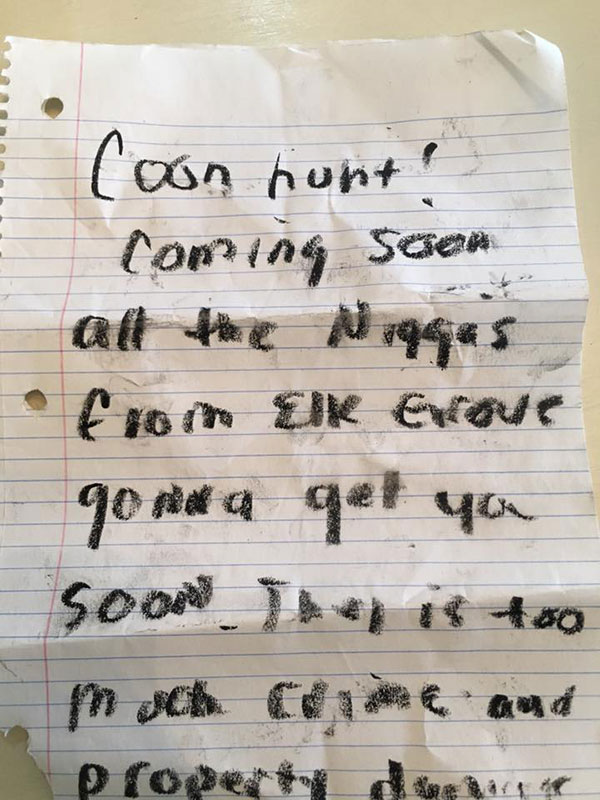 Coon hunt!
coming soon
all the Niggas
from Elk Grove
gonna get ya
soon. Thay is too
much crime and
property